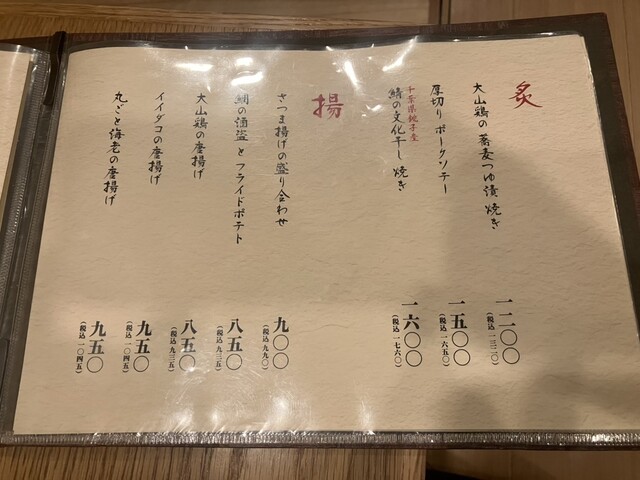 炙
大山鶏の蕎麦つゆ漬焼き
一二〇〇
(税込 一三二〇)
厚切り ポークソテー
一五〇〇
(税込 一六五〇)
千葉県銚子産
鯖の文化干し焼き
一六〇〇
(税込 一七六〇)
揚
さつま揚げの盛り合わせ
九〇〇
(税込 九九〇)
鯛の酒盗とフライドポテト
八五〇
(税込 九三五)
大山鶏の唐揚げ
八五〇
(税込 九三五)
イイダコの唐揚げ
九五〇
(税込 一〇四五)
丸ごと海老の唐揚げ
九五〇
(税込 一〇四五)